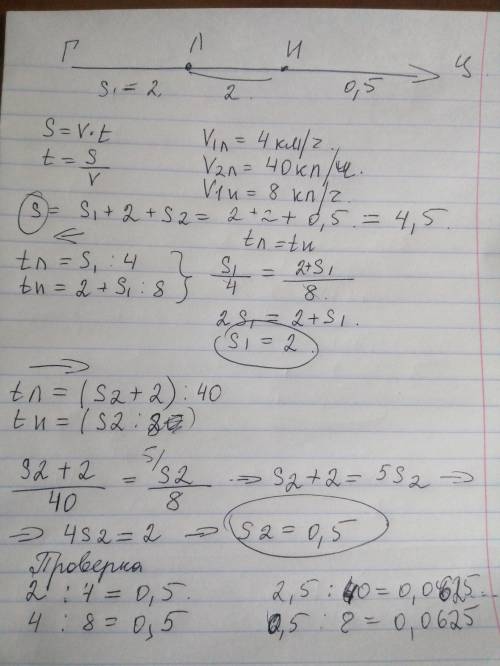 Г Л И Ц
S₁ = 2 2 0,5
S = v · t V₁л = 4 км/ч.
t = S/v V₂л = 40 км/ч.
V₁и = 8 км/ч.
S = S₁ + 2 + S₂ = 2 + 2 + 0,5. = 4,5.
← tл = tи
tл = S₁ : 4 } S₁/4 = 2+S₁/8.
tи = 2 + S₁ : 8
2S₁ = 2 + S₁.
S₁ = 2.
→
tл = (S2 + 2) : 40
tи = (S2 : 8)
S2 + 2/40 = 5/S2/8 ⇒ S₂ + 2 = 5S₂ ⇒
⇒ 4S2 = 2 ⇒ S2 = 0,5
Проверка
2 : 4 = 0,5. 2,5 : 40 = 0,0625.
4 : 8 = 0,5 0,5 : 8 = 0,0625